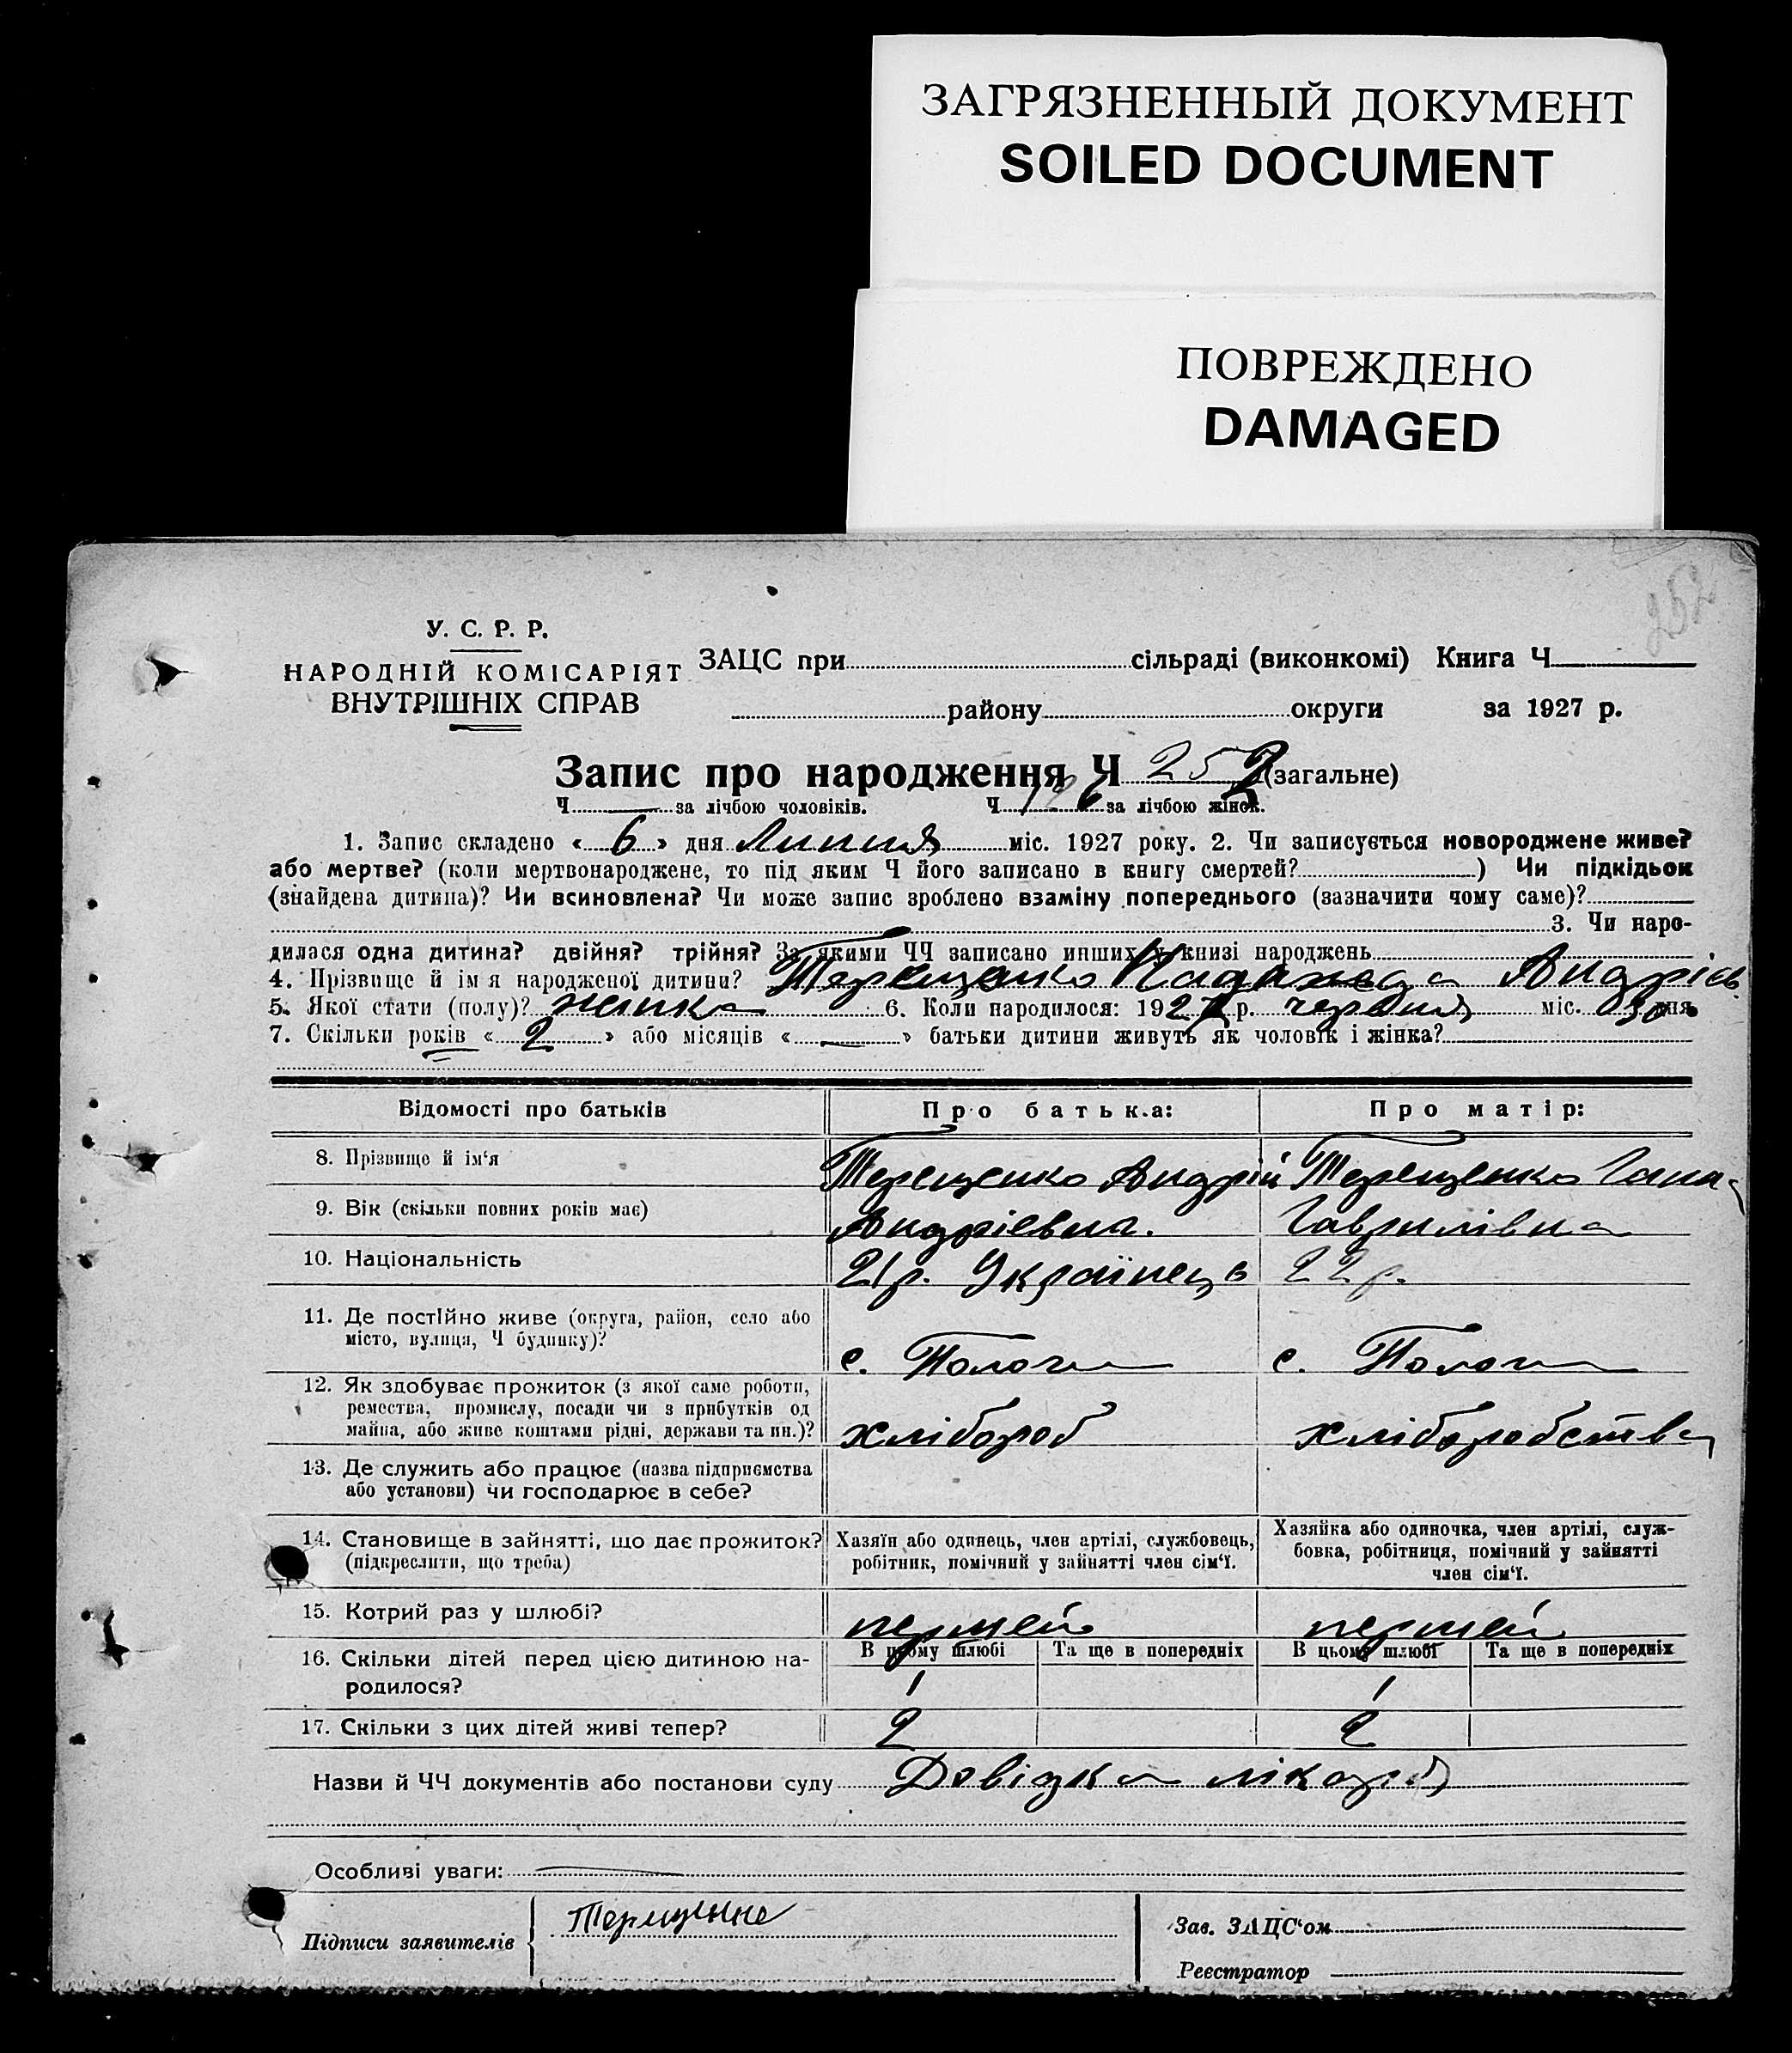 ЗАГРЯЗНЕННЫЙ ДОКУМЕНТ
SOILED DOCUMENT
ПОВРЕЖДЕНО
DAMAGED
252
У. С. Р. Р.
НАРОДНІЙ КОМІСАРІЯТ
ВНУТРІШНІХ СПРАВ
ЗАЦС при сільраді (виконкомі) Книга Ч
району округи за 1927 р.
Запис про народження Ч 252 (загальне)
Ч — за лічбою чоловіків. Ч 126 за лічбою жінок.
1. Запис складено « 6 » дня Липня міс. 1927 року. 2. Чи записується новороджене живе?
або мертве? (коли мертвонароджене, то під яким Ч його записано в книгу смертей? ) Чи підкідьок
(знайдена дитина)? Чи всиновлена? Чи може запис зроблено взаміну попереднього (зазначити чому саме)?
3. Чи наро-
дилася одна дитина? двійня? трійня? За якими ЧЧ записано инших у книзі народжень
4. Прізвище й ім я народженої дитини? Терещенко Андрієв
5. Якої стати (полу)? жінка 6. Коли народилося: 1927 р. червня міс. 30 дня
7. Скільки років « 2 » або місяців « — » батьки дитини живуть як чоловік і жінка?
Відомості про батьків Про батька: Про матір:
8. Прізвище й ім‘я Терещенко Андрій Терещенко Гана
9. Вік (скільки повних років має) Андрієвич. Гаврилівна
10. Національність 21 р. Українець 22 р.
11. Де постійно живе (округа, район, село або
місто, вулиця, Ч будинку)? с. Пологи с. Пологи
12. Як здобуває прожиток (з якої саме роботи,
ремества, промислу, посади чи з прибутків од
майна, або живе коштами рідні, держави та ин.)? хлібороб хліборобства
13. Де служить або працює (назва підприємства
або установи) чи господарює в себе?
14. Становище в зайнятті, що дає прожиток? Хазяїн або одинець, член артілі, службовець, Хазяйка або одиночка, член артілі, служ-
(підкреслити, що треба) робітник, помічний у зайнятті член сім‘ї. бовка, робітниця, помічний у зайнятті
член сім‘ї.
15. Котрий раз у шлюбі? первей первей
16. Скільки дітей перед цією дитиною на- В цьому шлюбі Та ще в попередніх В цьому шлюбі Та ще в попередніх
родилося? 1 1
17. Скільки з цих дітей живі тепер? 2 2
Назви й ЧЧ документів або постанови суду Довідка лікаря
Особливі уваги: —
Підписи заявителів Терещенко
Зав. ЗАЦС‘ом
Реєстратор